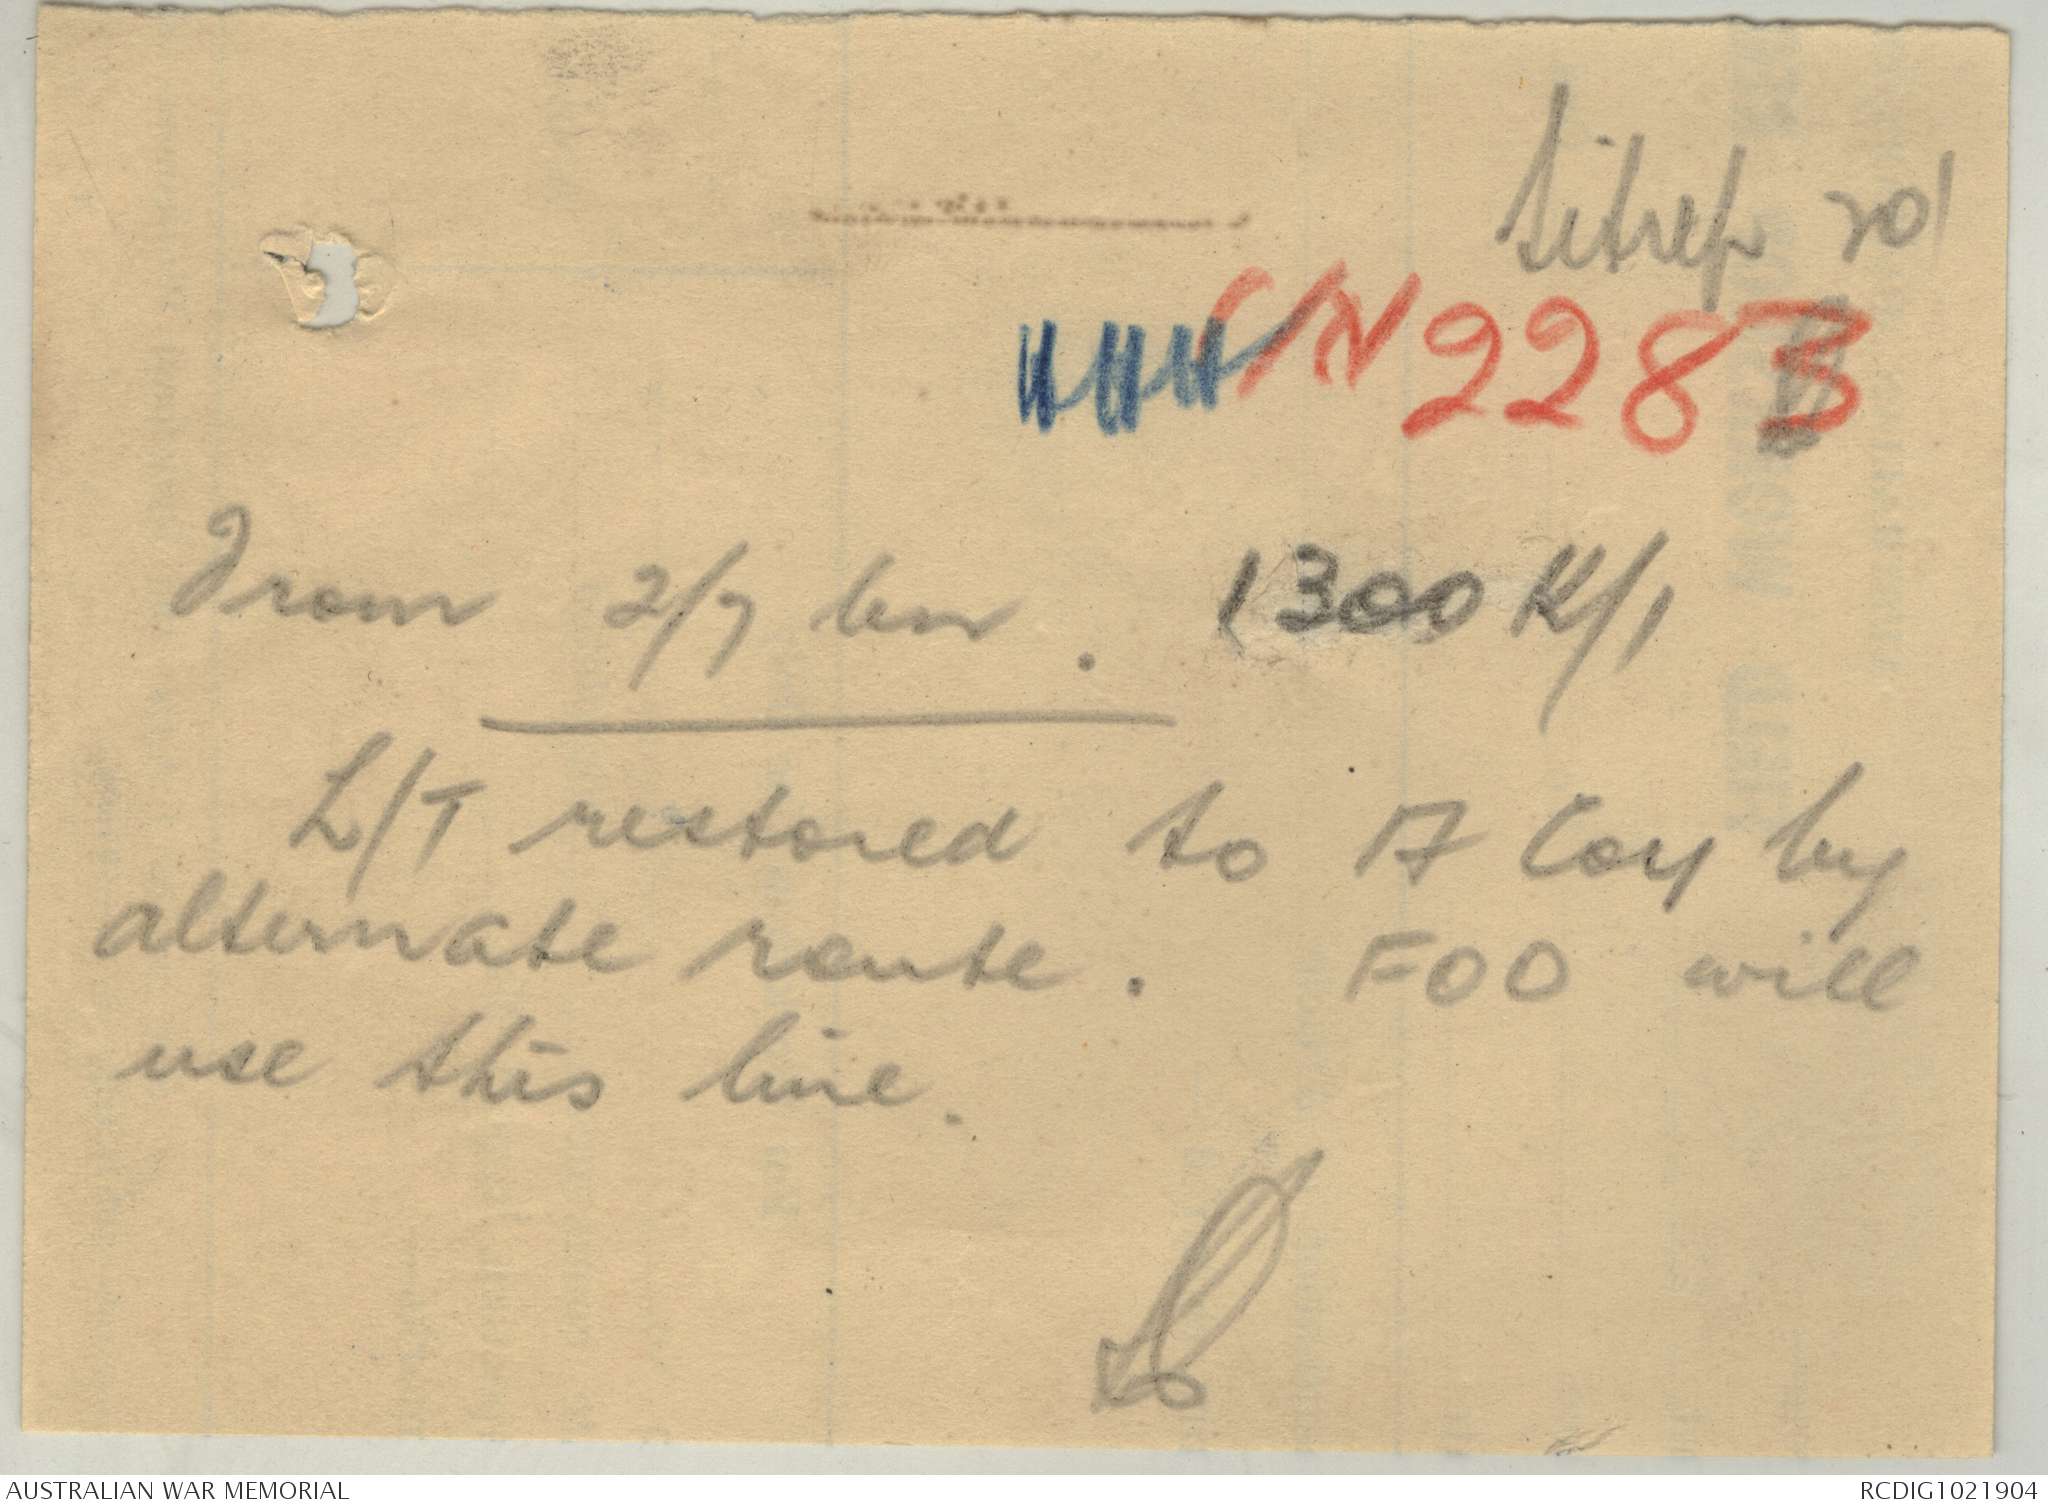 Sitrep 201
IN 2283
From 2/7 bn. 1300 K/1
L/T restored to A Coy by
alternate route. FOO will
use this line.
AUSTRALIAN WAR MEMORIAL
RCDIG1021904